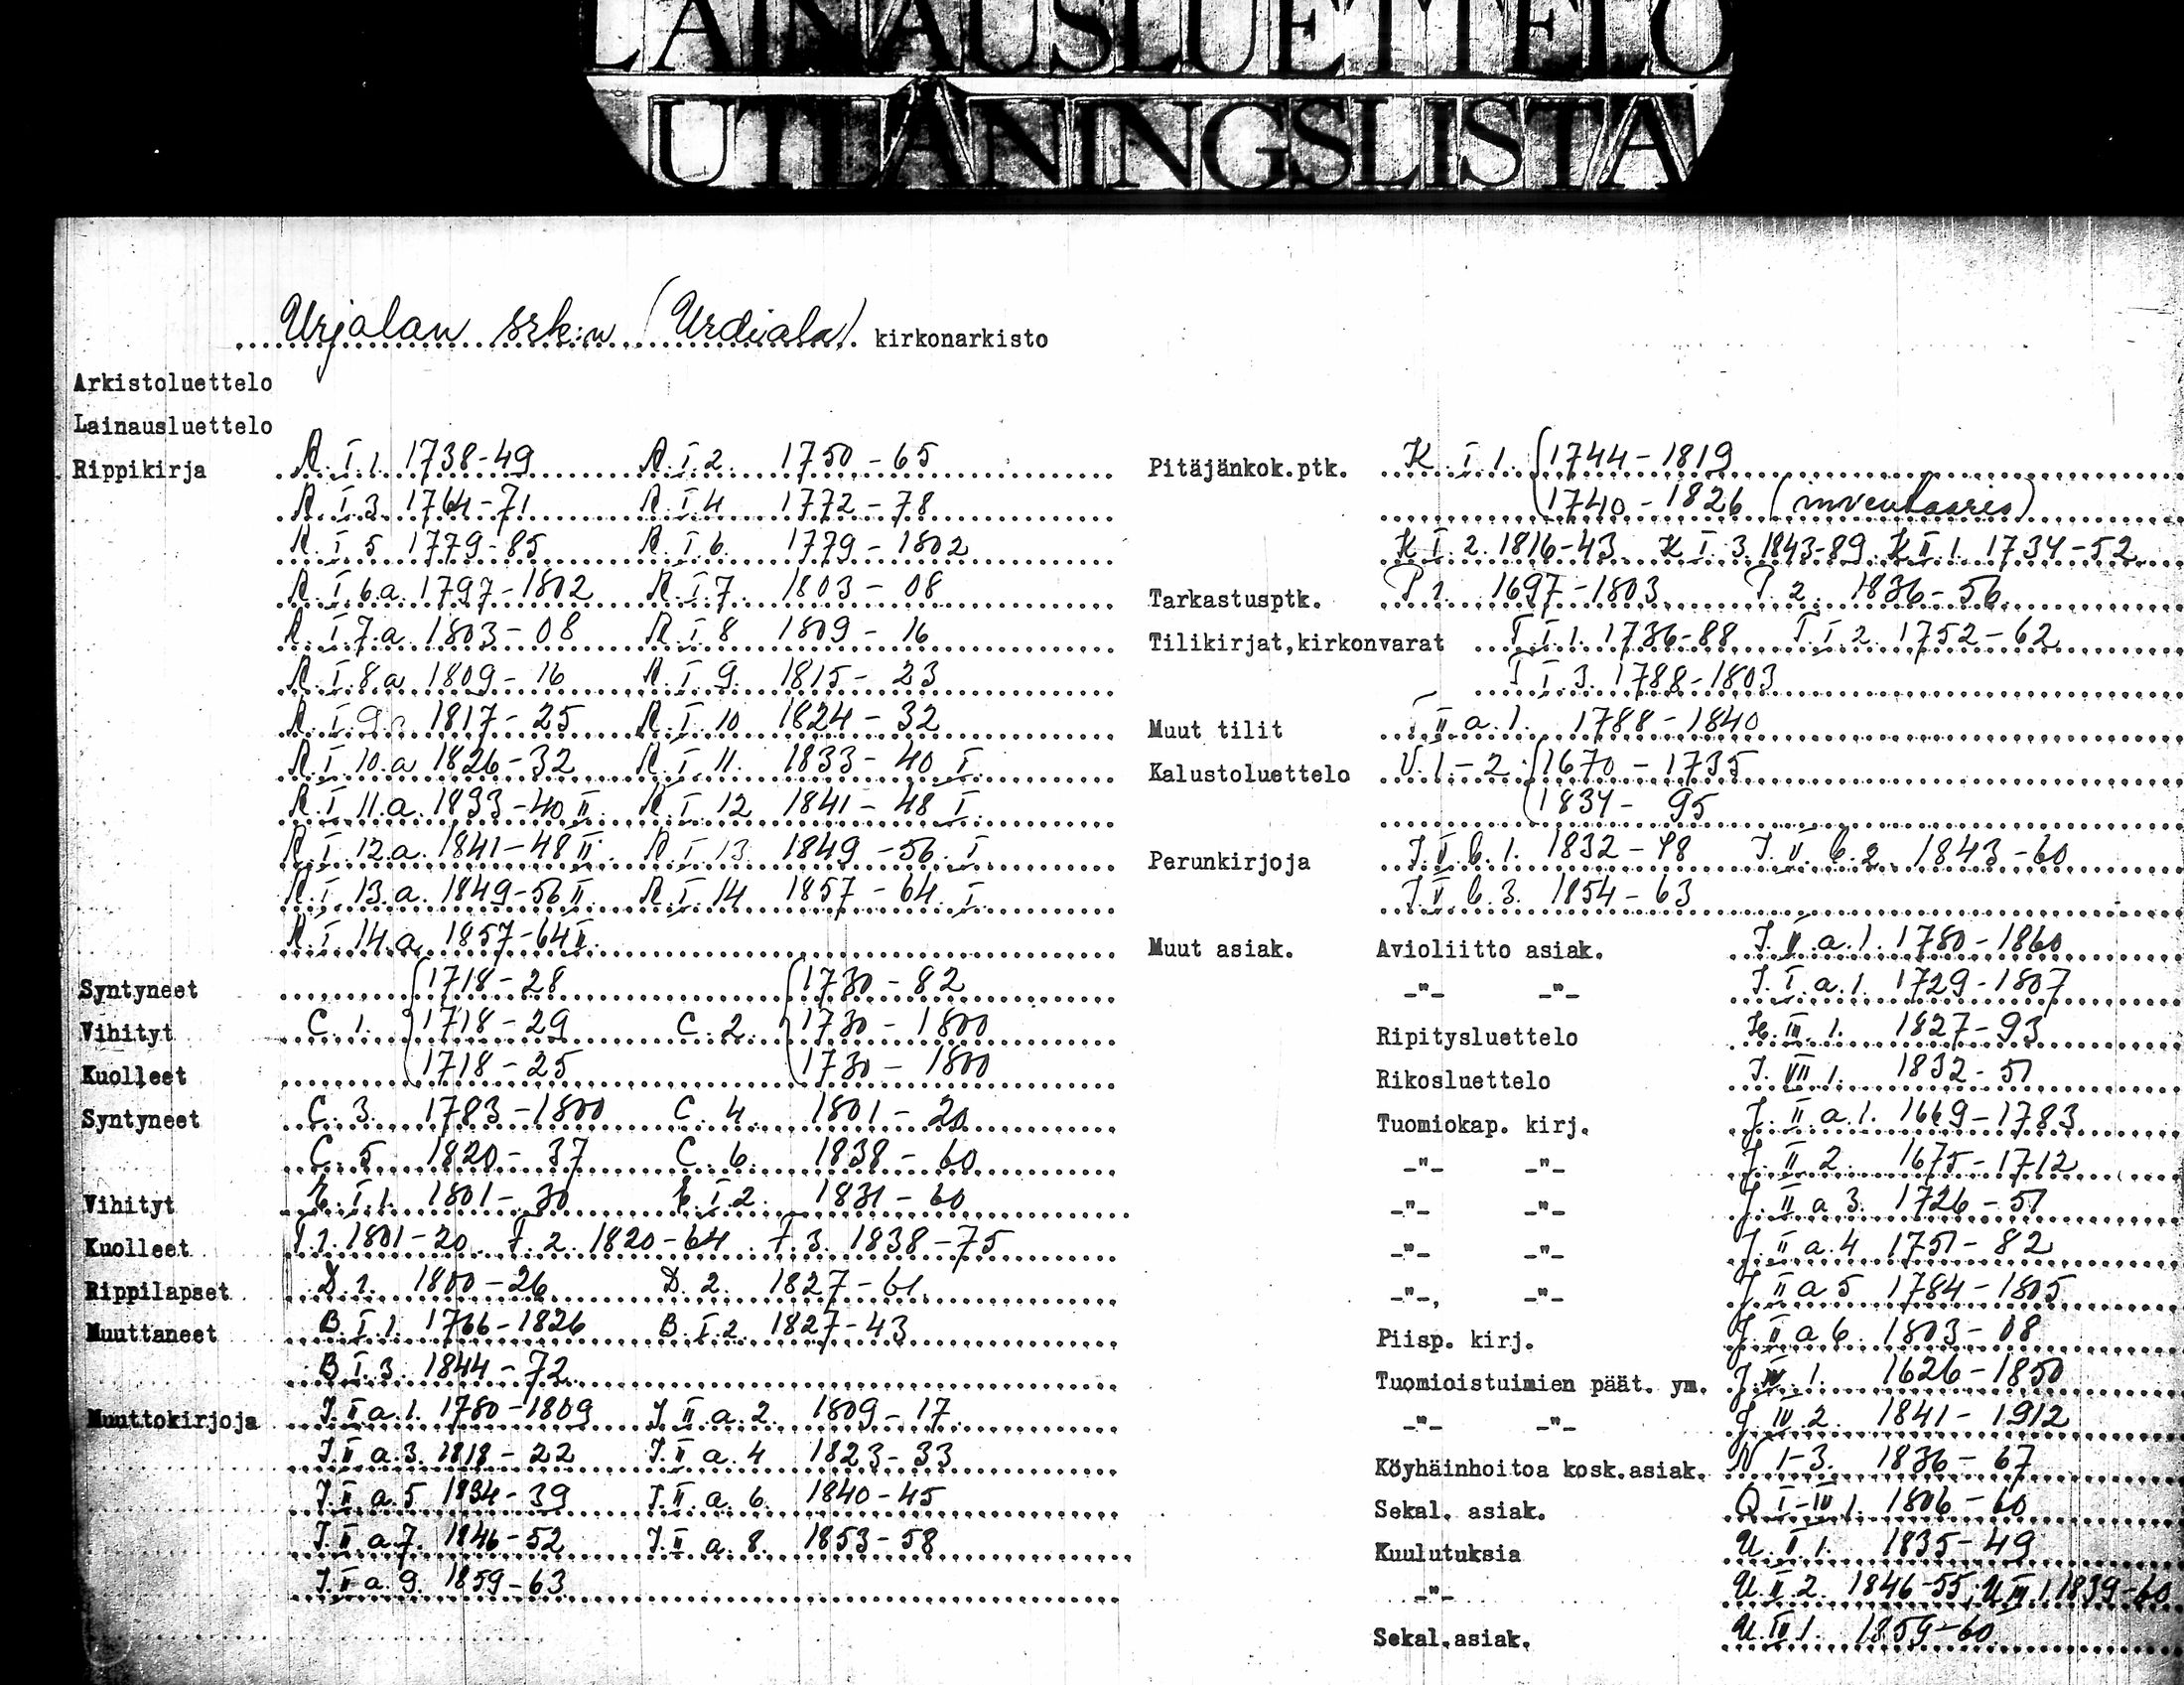 LAINAUSLUETTELO
UTLÅNINGSLISTA
Urjalan srk:n (Urdiala) kirkonarkisto
Arkistoluettelo
Lainausluettelo
Rippikirja A.I.1. 1738-49 A.I.2. 1750-65
A.I.3. 1764-71 A.I.4 1772-78
A.I.5 1779-85 A.I.6. 1779-1802
A.I.6.a. 1797-1802 A.I.7. 1803-08
A.I.7.a. 1803-08 A.I.8 1809-16
A.I.8.a 1809-16 A.I.9. 1815-23
A.I.9.a 1817-25 A.I.10 1824-32
A.I.10.a 1826-32 A.I.11. 1833-40 I.
A.I.11.a. 1833-40 II. A.I.12 1841-48 I.
A.I.12.a. 1841-48 II. A.I.13. 1849-56. I.
A.I.13.a. 1849-56 II. A.I.14 1857-64. I.
A.I.14.a. 1857-64 II.
Syntyneet 1718-28 1730-82
Vihityt C.1. 1718-29 C.2. 1730-1800
Kuolleet 1718-25 1730-1800
Syntyneet C.3. 1783-1800 C.4. 1801-20
C.5 1820-37 C.6. 1838-60
Vihityt E.I.1. 1801-30 E.I.2. 1831-60
Kuolleet F.1. 1801-20 F.2. 1820-64 F.3. 1838-75
Rippilapset D.1. 1800-26 D.2. 1827-61.
Muuttaneet B.I.1. 1766-1826 B.I.2. 1827-43
B.I.3. 1844-72
Muuttokirjoja J.II.a.1. 1780-1809 J.II.a.2. 1809-17.
J.II.a.3. 1818-22 J.II.a.4 1823-33
J.II.a.5 1834-39 J.II.a.6. 1840-45
J.II.a.7. 1846-52 J.II.a.8. 1853-58
J.II.a.9. 1859-63
Pitäjänkok.ptk. K.I.1. 1744-1819
1740-1826 (inventaario)
K.I.2. 1816-43. K.I.3. 1843-89. K.II.1. 1734-52
Tarkastusptk. P.1. 1697-1803 P.2. 1836-56
Tilikirjat,kirkonvarat T.I.1. 1736-88 T.I.2. 1752-62
T.I.3. 1788-1803
Muut tilit II.a.1. 1788-1840
Kalustoluettelo V.1-2 1670-1735
1834-95
Perunkirjoja J.V.b.1. 1832-48 J.V.b.2. 1843-60
J.V.b.3. 1854-63
Muut asiak. Avioliitto asiak. J.V.a.1. 1780-1860
-"- -"- J.I.a.1. 1729-1807
Ripitysluettelo K.III.1. 1827-93
Rikosluettelo J.VII.1. 1832-51
Tuomiokap. kirj. J.II.a.1. 1669-1783
-"- -"- J.II.2. 1675-1712
-"- -"- J.II.a.3. 1726-51
-"- -"- J.II.a.4 1751-82
-"-, -"- J.II.a.5 1784-1805
Piisp. kirj. J.II.a.6. 1803-08
Tuomioistuimien päät. ym. J.IV.1. 1626-1850
-"- -"- J.IV.2. 1841-1912
Köyhäinhoitoa kosk.asiak. N 1-3. 1836-67
Sekal. asiak. Q I-IV 1. 1806-60
Kuulutuksia U.I.1. 1835-49
-"- U.II.2. 1846-55, U.III.1. 1839-60
Sekal.asiak. U.IV.1. 1859-60